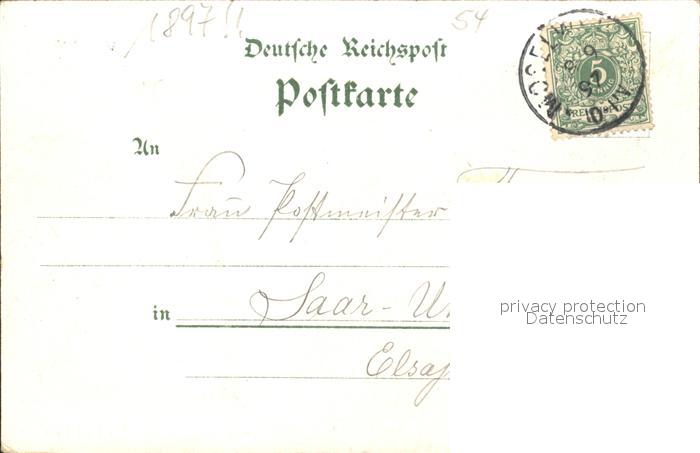 1897!!
54
Deutsche Reichspost
Postkarte
5
An
Frau Postmeister
in Saar-Un
Elsaß
privacy protection
Datenschutz